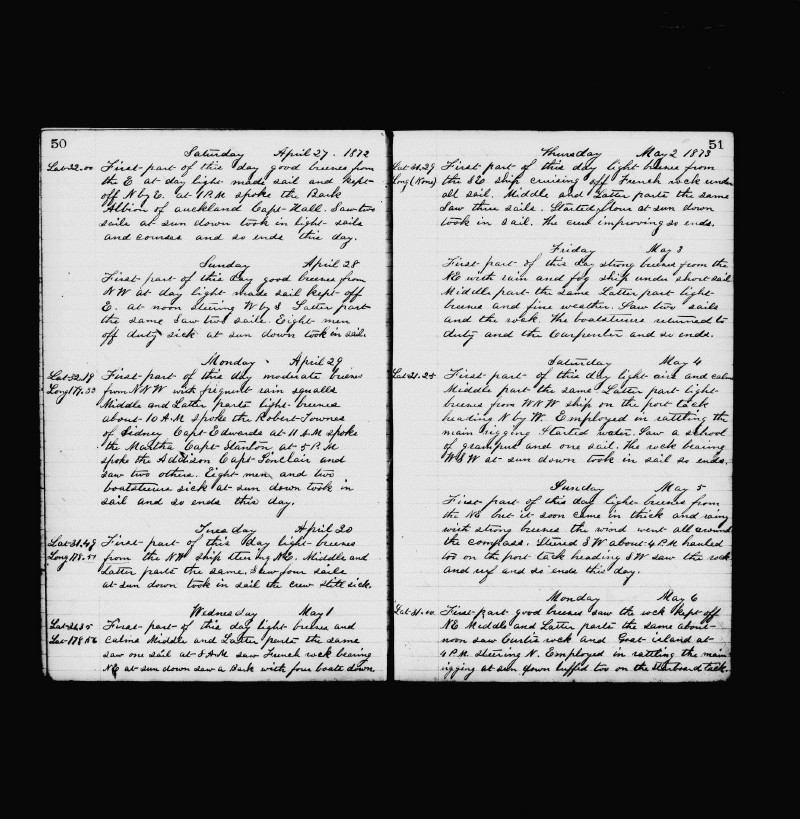 50
Saturday April 27. 1872
Lat 32.00 First part of this day good breezes from
the E at day light made sail and kept
off N by E. at 9 A.M. spoke the Bark
Albion of Auckland Capt Hall. Saw two
sails at sun down took in light sails
and courses and so ends this day.
Sunday April 28
First part of this day good breezes from
NW at day light made sail kept off
E. at noon steering W by S Latter part
the same Saw two sails. Eight men
off duty sick at sun down took in sail
Monday April 29
Lat 32.19 First part of this day moderate breezes
Long 179.33 from NNW with friquent rain squalls
Middle and Latter parts light breezes
about 10 A.M spoke the Robert Townes
of Sidney Capt Edwards at 11 A.M spoke
the Martha Capt Stanton at 5 P.M
spoke the Addison Capt Sinclair and
saw two others. Eight men and two
boatsteeres sick at sun down took in
sail and so ends this day.
Tuesday April 30
Lat 31.49 First part of this day light breezes
Long 178.51 from the NW ship steering NE. Middle and
Latter parts the same. Saw four sails
at sun down took in sail the crew still sick.
Wednesday May 1
First part of this day light breezes and
Lat 178.56 calms Middle and Latter parts the same
saw one sail at 8 A.M saw French rock bearing
NE at sun down saw a Bark with four boats down
51
Thursday May 2 1873
First part of this day light breezes from
Long (None) the SE ship cruising off French rock under
all sail. Middle and Latter parts the same
Saw three sails. Started flour at sun down
took in sail. The crew improving so ends.
Friday May 3
First part of this day strong breezes from the
NE with rain and fog ship under short sail
Middle part the same Latter part light
breezes and fine weather. Saw two sails
and the rock. The boatsteeres returned to
duty and the Carpenter and so ends.
Saturday May 4
Lat 31.25 First part of this day light airs and calm
Middle part the same Latter part light
breezes from WNW ship on the port tack
heading N by W. Employed in rattling the
main rigging. Started water. Saw a school
of grampus and one sail. The rock bearing
WSW at sun down took in sail so ends.
Sunday May 5
First part of this day light breezes from
the NE but it soon came in thick and rainy
with strong breezes the wind went all around
the compass. Steered SW about 4 P.M hauled
too on the port tack heading SW saw the rock
and reef and so ends this day.
Monday May 6
Lat 31.00. First part good breezes saw the rock kept off
NE Middle and Latter parts the same about
noon saw Curtis rock and Goat island at
4 P.M. steering N. Employed in rattling the main
rigging at sun down luffed too on the starboard tack.